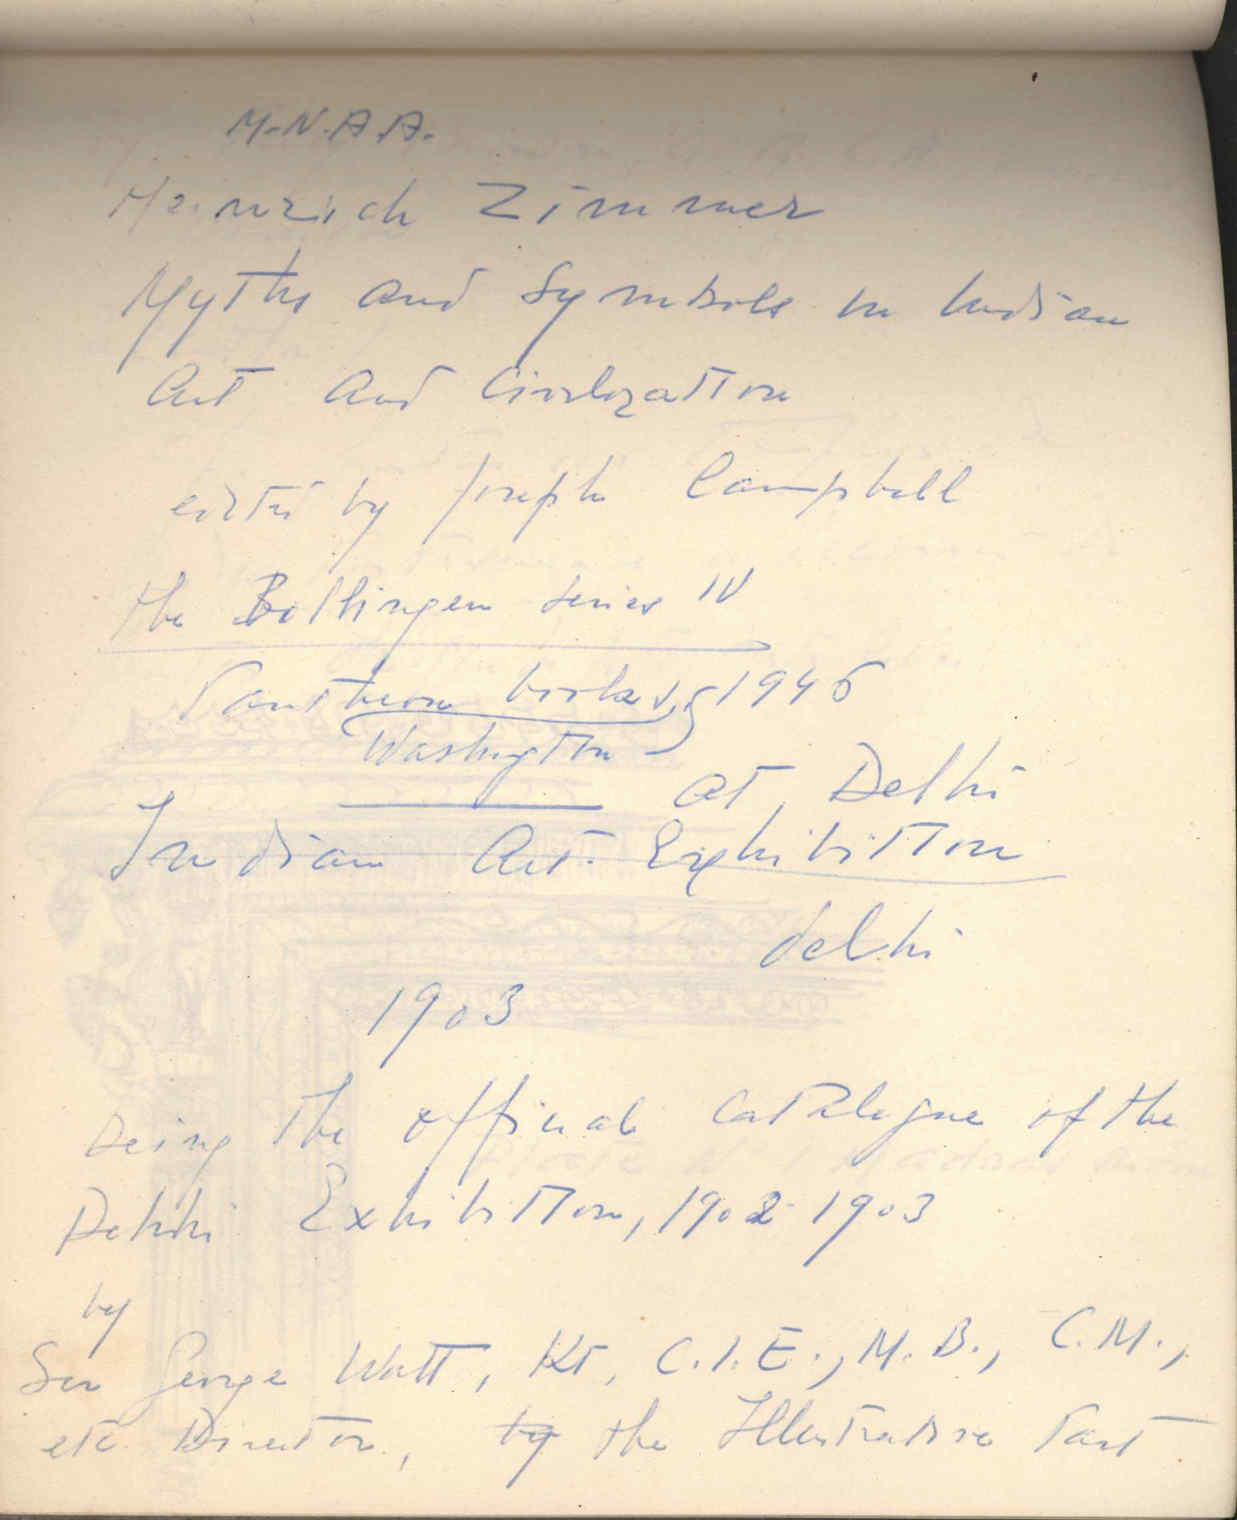 M.N.A.A.
Heinrich Zimmer
Myths and Symbols in Indian
Art and Civilization
edited by Joseph Campbell
the Bollingen Series IV
Pantheon books, 1946
Washington
at Delhi
Indian Art Exhibition
delhi
1903
being the official catalogue of the
Delhi Exhibition, 1902-1903
by
Sir George Watt, Kt, C.I.E., M.B., C.M.,
etc. Director, by the Illustrative Part